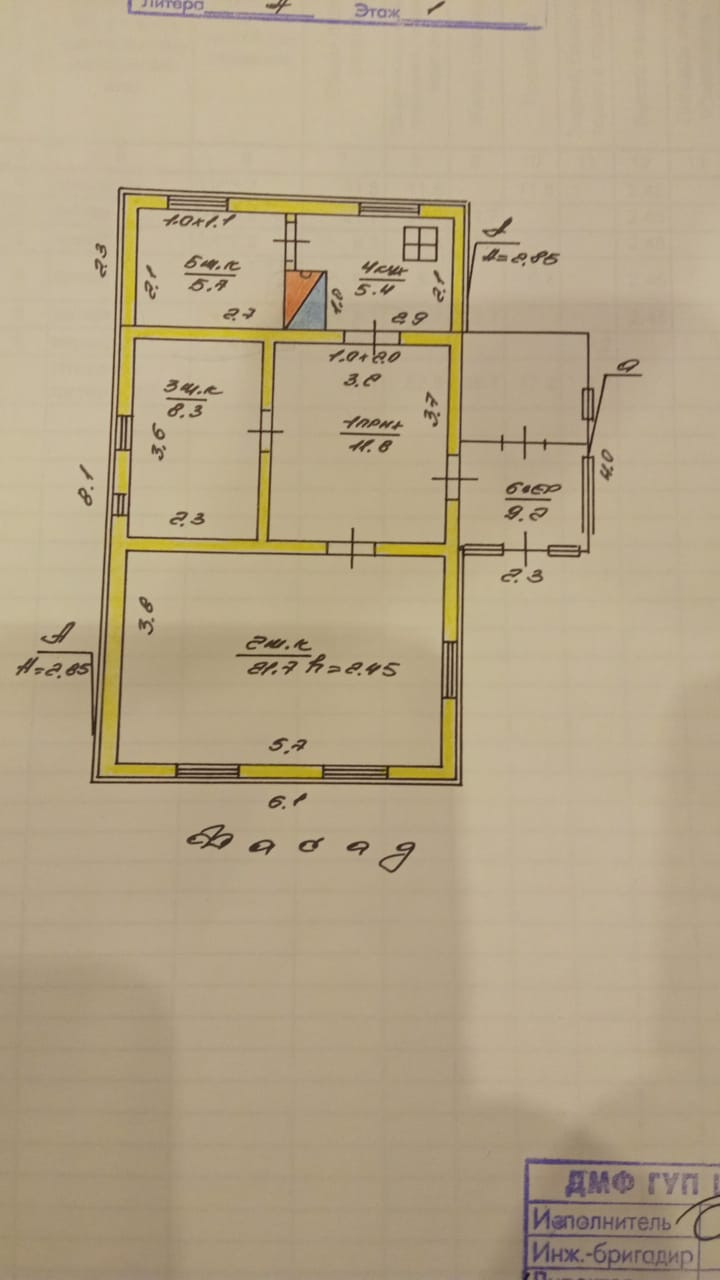 Литера А Этаж 1
1.0×1.1
2.3
2.1
5ж.к
5.7
2.7
1.0
4кух
5.4
2.1
2.9
H=2.85
1.0×2.0
3.2
3ж.к
8.3
3.6
2.3
1прих
11.8
3.7
а
4.0
6вер
9.2
2.3
8.1
А
H=2.85
3.8
2ж.к
21.7 h=2.45
5.7
6.1
Фасад
ДМФ ГУП
Исполнитель
Инж.-бригадир